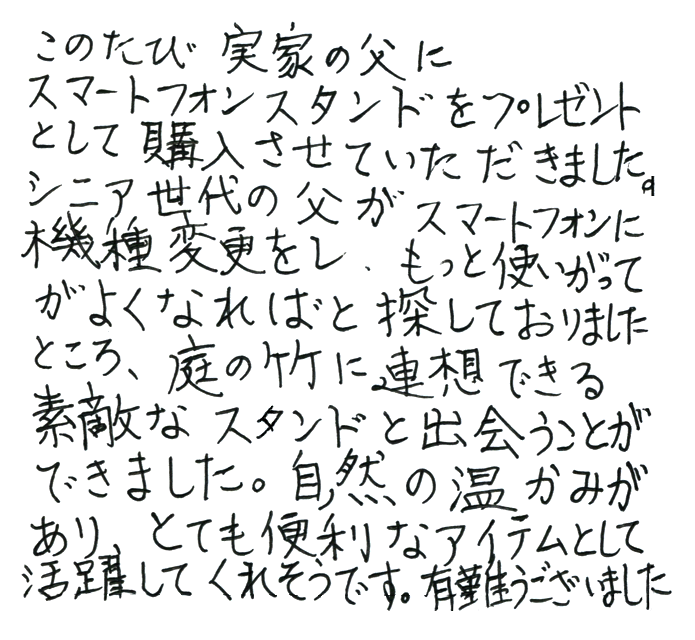 このたび 実家の父に
スマートフォンスタンドをプレゼント
として購入させていただきました。
シニア世代の父がスマートフォンに
機種変更をし、もっと使いがって
がよくなればと探しておりました
ところ、庭の竹に連想できる
素敵なスタンドと出会うことが
できました。自然の温かみが
あり、とても便利なアイテムとして
活躍してくれそうです。有難うございました